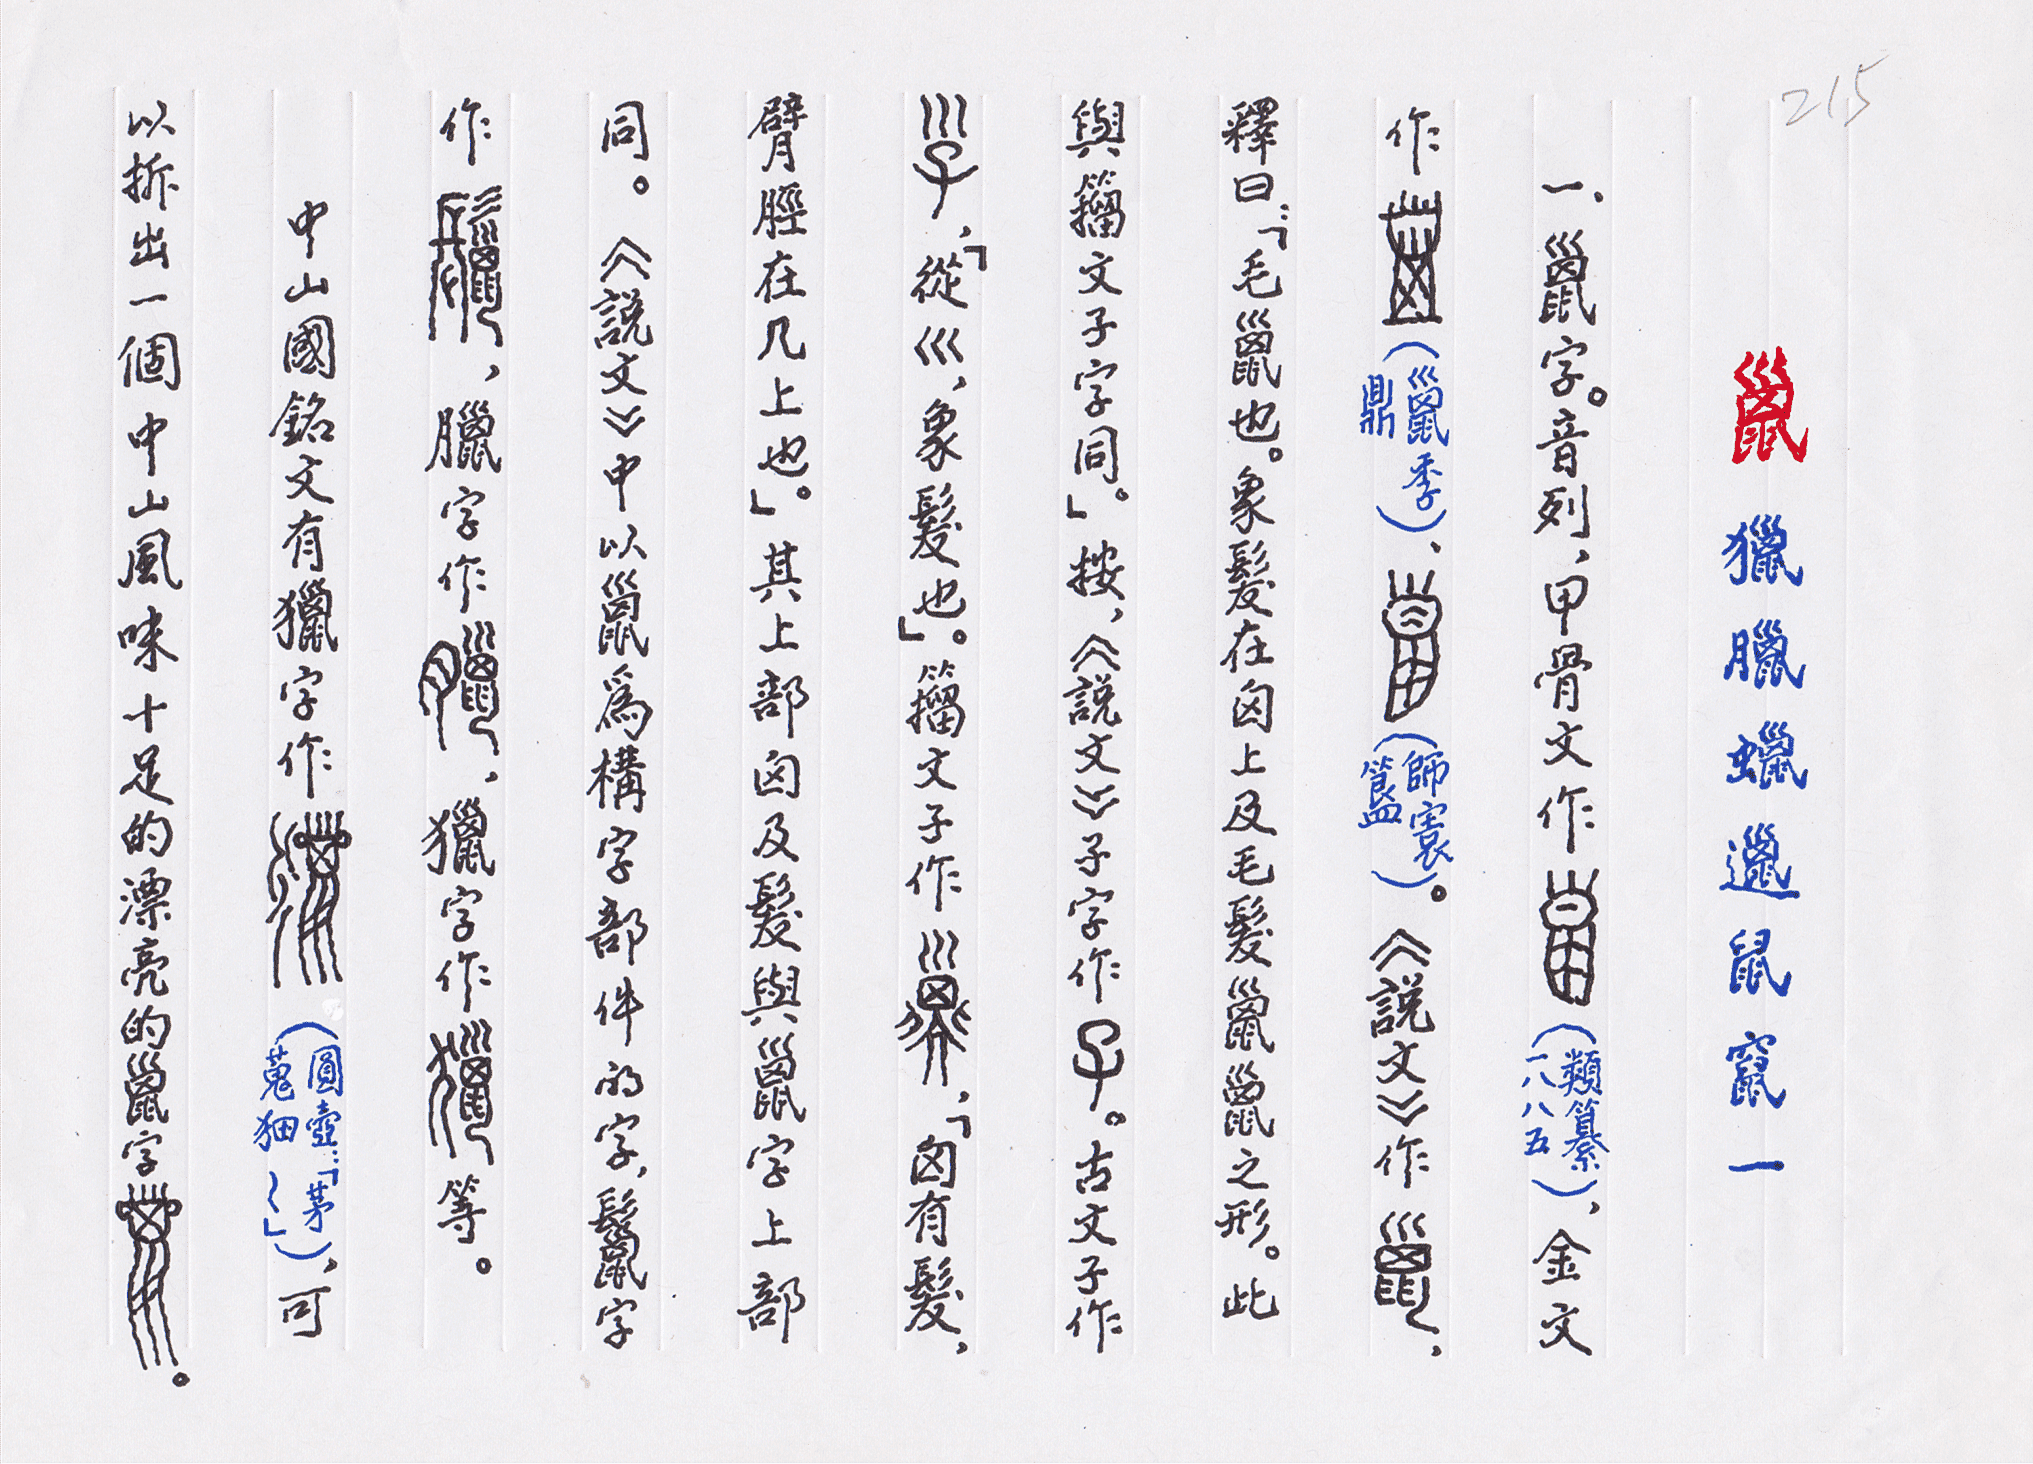 215
巤 獵臘蠟邋鼠竄一
一、巤字。音列,甲骨文作(類纂一八八五),金文
作(巤季鼎)、(師寰簋)。《說文》作巤,
釋曰:「毛巤也。象髮在囟上及毛髮巤巤之形。此
與籀文子字同。」按,《說文》子字作子。古文子作
,「從巛,象髮也」。籀文子作,「囟有髮,
臂脛在几上也。」其上部囟及髮與巤字上部
同。《說文》中以巤爲構字部件的字,鬣字
作,臘字作,獵字作等。
中山國銘文有獵字作(圓壺:「茅蒐狃〻」),可
以拆出一個中山風味十足的漂亮的巤字。